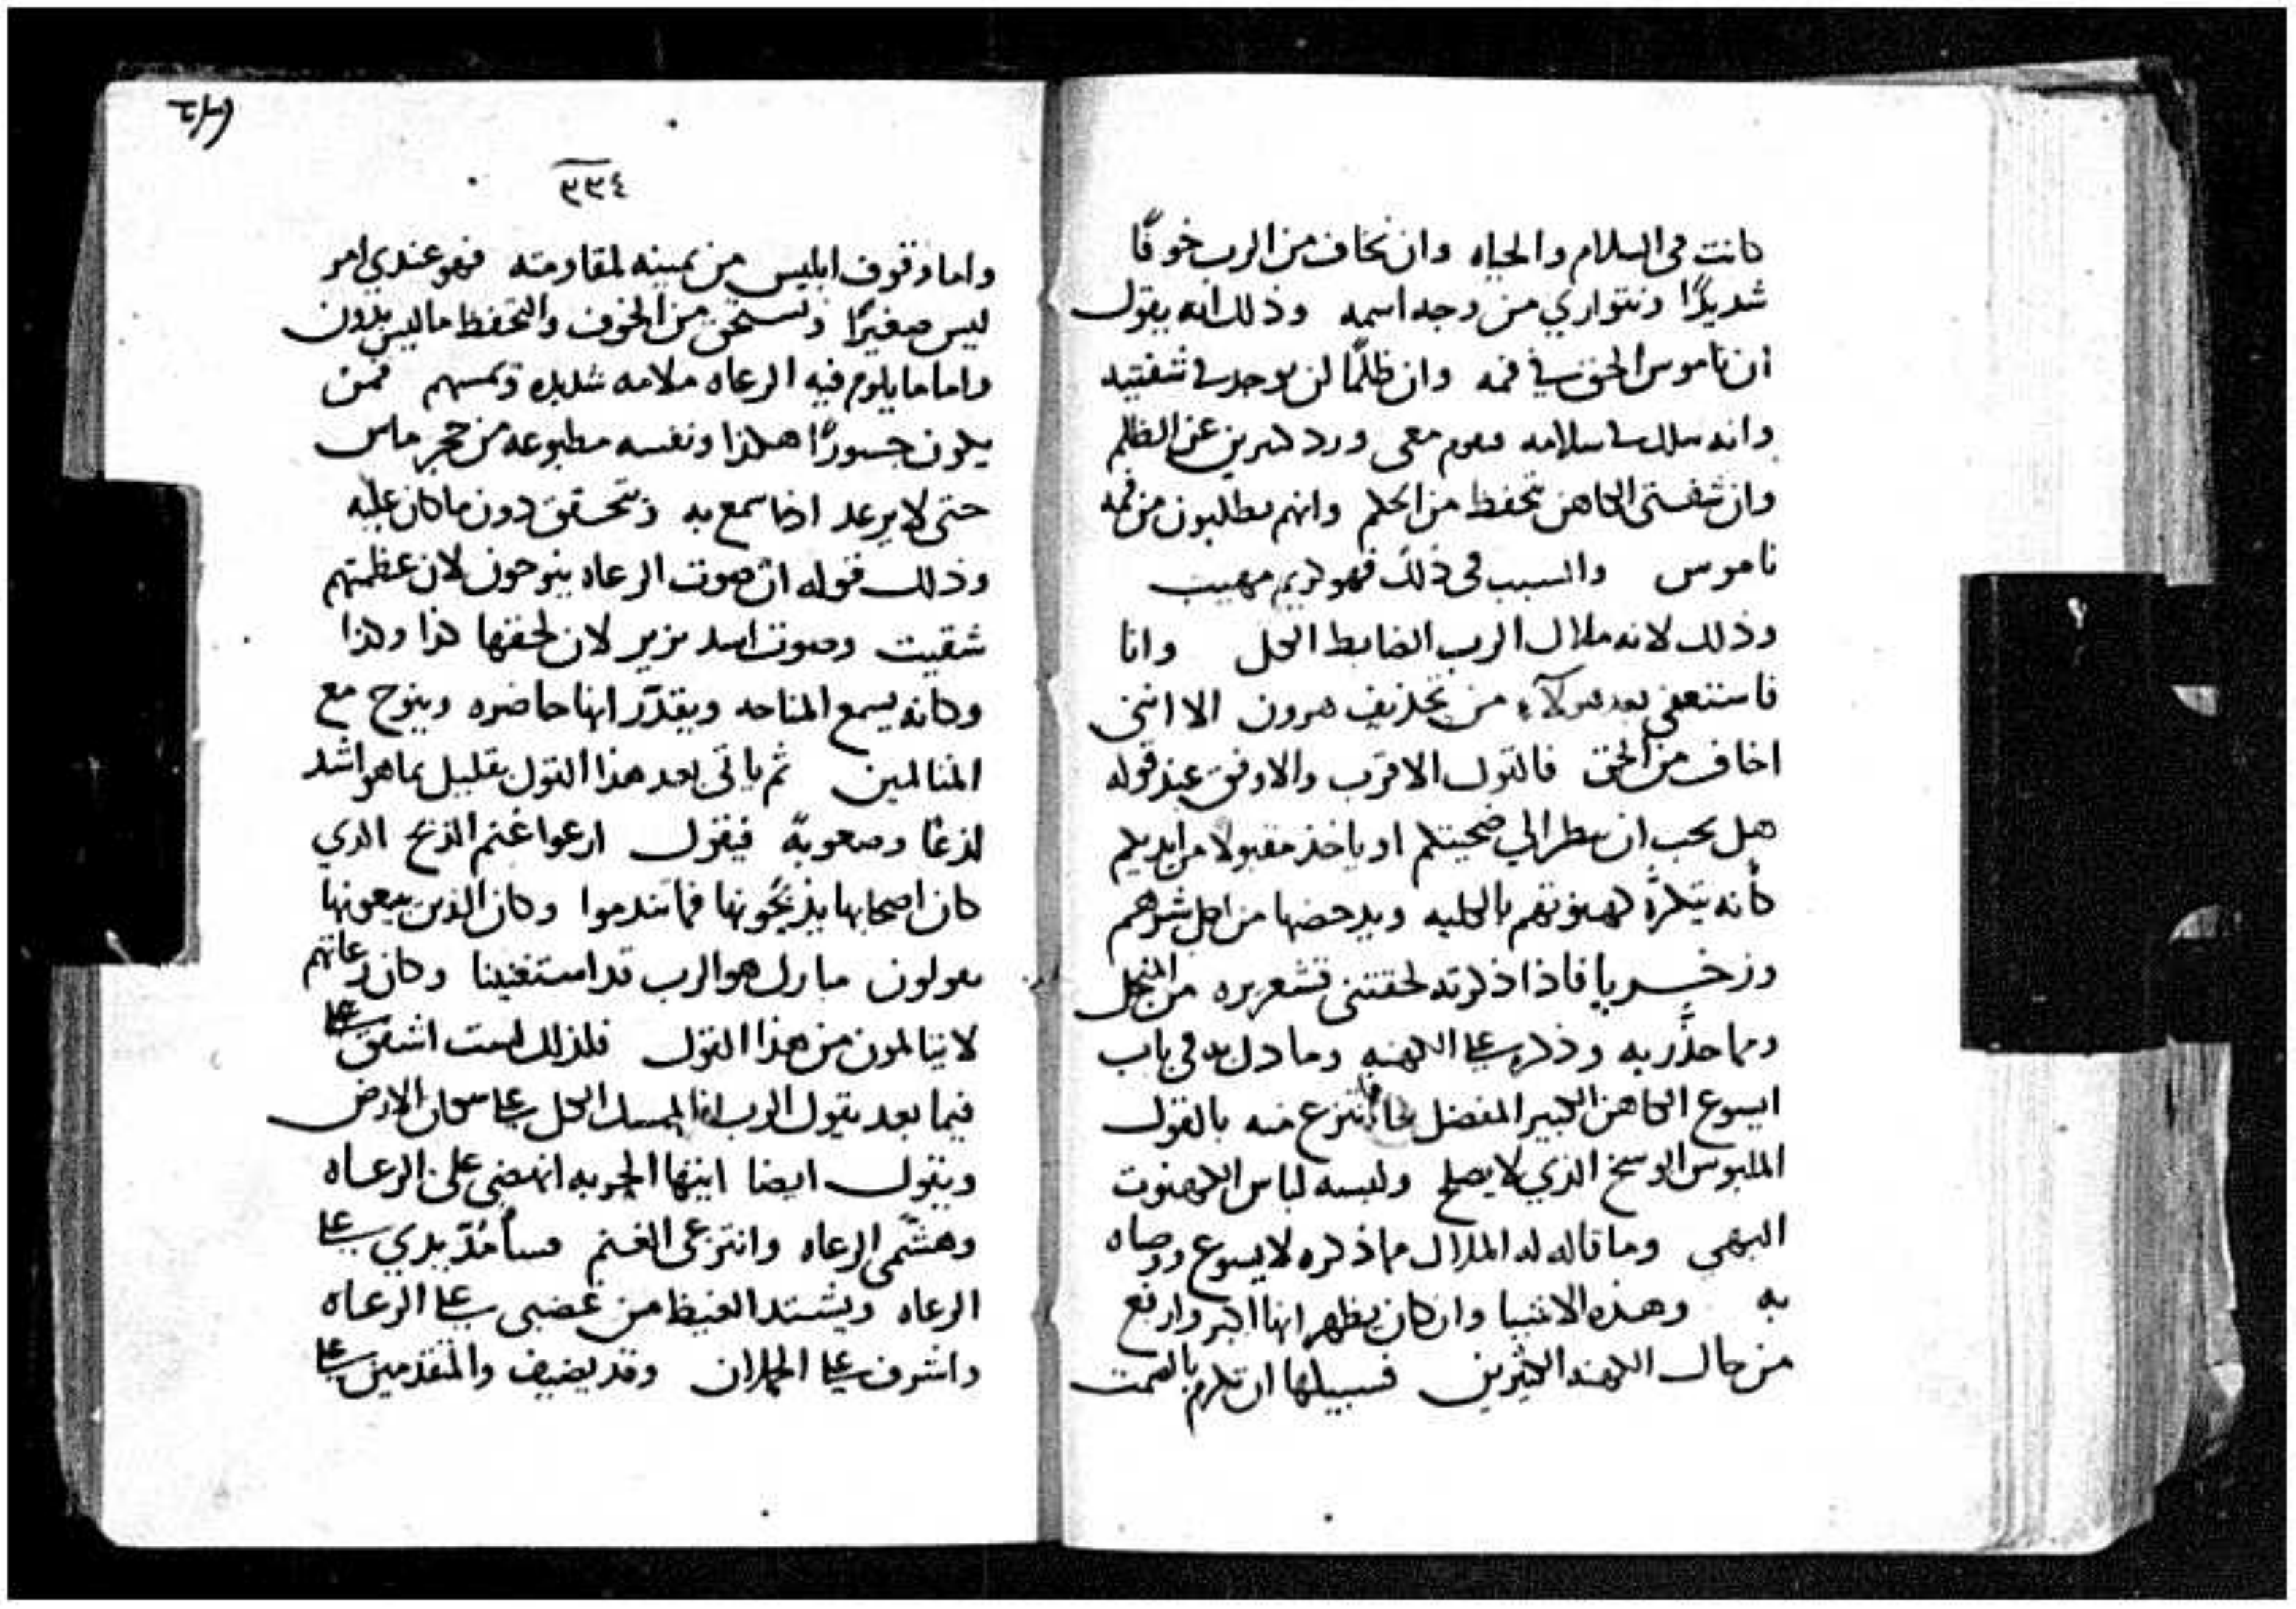 كانت فى السلام والحياه وان نخاف من الرب خوفًا
شديدًا ونتواري من وجه اسمه وذلك انه يقول
ان ناموس الحق في فمه وان ظلمًا لن يوجد في شفتيه
وانه سلك في سلامه معى ورد كثيرين عن الظلم
وان شفتى الكاهن تحفظ من الحكم وانهم يطلبون من فمه
ناموس والسبب فى ذلك فهو كريم مهيب
وذلك لانه ملاك الرب الضابط الكل وانا
فاستعفى بعد هولآء من تجذيف هرون الا انني
اخاف من الحق فالقول الاقرب والاوفق عند قوله
هل يجب ان ينظر الي ضحيتكم او ياخذ مقبولا من ايديكم
كأنه يتكرَّه كهنوتهم بالكليه ويدحضها من اجل شرهم
وزخريا فاذا ذكرته لحقتنى قشعريره من المنجل
ومما حذَّر به وذكره على الكهنه وما دل به فى باب
ايسوع الكاهن الكبير المفضل انتزع منه بالقول
الملبوس الوسخ الذي لا يصلح ولبسه لباس الكهنوت
البهى وما قاله له الملاك مما ذكره لايسوع ووصاه
به وهذه الاشيا وان كان يظهر انها اكبر وارفع
من حال الكهنه الكثيرين فسبيلها ان تكرم بالصمت
٣٣٤
واما وقوف ابليس من يمينه لمقاومته فهو عندي امر
ليس صغيرًا وتستحق من الخوف والتحفظ ما ليس بدون
واما ما يلوم فيه الرعاه ملامه شديده وتمسهم فمن
يكون جسورًا هكذا ونفسه مطبوعه من حجر ماس
حتى لا يرعد اذا سمع به وتتحسق دون ما كان عليه
وذلك قوله ان صوت الرعاه ينوحون لان عظمتهم
شقيت وصوت اسد يزير لان لحقها كذا وكذا
وكانه يسمع المناحه ويقدّر انها حاضره وينوح مع
المتالمين ثم ياتى بعد هذا القول بقليل بما هو اشد
لذعًا وصعوبةً فيقول ارعوا غنم الذبح الذي
كان اصحابها يذبحونها فما تندموا وكان الذين يبيعونها
يقولون مبارك هو الرب قد استغنينا وكان رعاتهم
لا يتالمون من هذا القول فلذلك لست اشفق على
فيما بعد يقول الرب الماسك الكل على سكان الارض
ويقول ايضا ايتها الحربه انهضى على الرعاه
وهشّمى الرعاه وانتزعى الغنم فسأمدّ يدي على
الرعاه ويشتد الغيظ من غضبى على الرعاه
واشرف على الحملان وقد يضيف والمتقدمين على